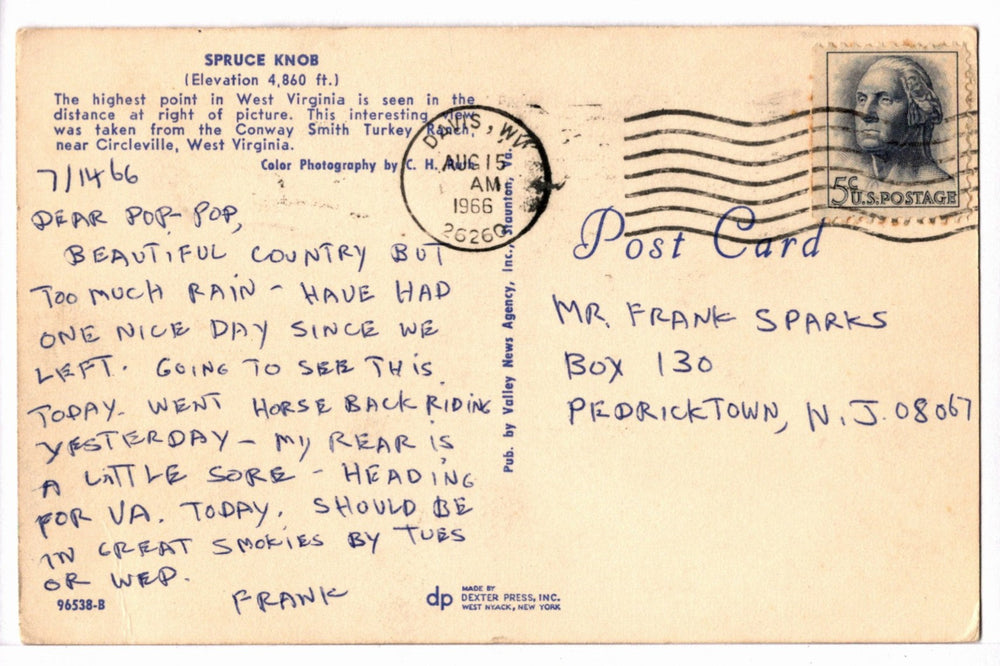 SPRUCE KNOB
(Elevation 4,860 ft.)
The highest point in West Virginia is seen in the
distance at right of picture. This interesting view
was taken from the Conway Smith Turkey Ranch,
near Circleville, West Virginia.
Color Photography by C. H.
7/14 66
DEAR POP-POP,
BEAUTIFUL COUNTRY BUT
TOO MUCH RAIN - HAVE HAD
ONE NICE DAY SINCE WE
LEFT. GOING TO SEE THIS
TODAY. WENT HORSE BACK RIDING
YESTERDAY - MY REAR IS
A LITTLE SORE - HEADING
FOR VA. TODAY. SHOULD BE
IN GREAT SMOKIES BY TUES
OR WED.
FRANK
96538-B
DAVIS, W.
AUG 15
AM
1966
26260
Pub. by Valley News Agency, Inc., Staunton, Va.
dp
MADE BY
DEXTER PRESS, INC.
WEST NYACK, NEW YORK
5¢ U.S. POSTAGE
Post Card
MR. FRANK SPARKS
BOX 130
PEDRICKTOWN, N.J. 08067